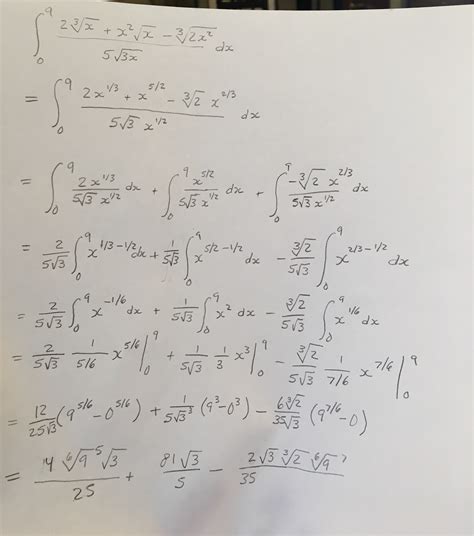 ∫₀⁹ (2∛x + x²√x − ∛(2x²)) / (5√(3x)) dx
= ∫₀⁹ (2x^(1/3) + x^(5/2) − ∛2 x^(2/3)) / (5√3 x^(1/2)) dx
= ∫₀⁹ (2x^(1/3)) / (5√3 x^(1/2)) dx + ∫₀⁹ x^(5/2) / (5√3 x^(1/2)) dx + ∫₀⁹ (−∛2 x^(2/3)) / (5√3 x^(1/2)) dx
= 2/(5√3) ∫₀⁹ x^(1/3−1/2) dx + 1/(5√3) ∫₀⁹ x^(5/2−1/2) dx − ∛2/(5√3) ∫₀⁹ x^(2/3−1/2) dx
= 2/(5√3) ∫₀⁹ x^(−1/6) dx + 1/(5√3) ∫₀⁹ x² dx − ∛2/(5√3) ∫₀⁹ x^(1/6) dx
= 2/(5√3) 1/(5/6) x^(5/6) |₀⁹ + 1/(5√3) 1/3 x³ |₀⁹ − ∛2/(5√3) 1/(7/6) x^(7/6) |₀⁹
= 12/(25√3) (9^(5/6) − 0^(5/6)) + 1/(5√3³) (9³ − 0³) − 6∛2/(35√3) (9^(7/6) − 0)
= (14 ⁶√9⁵ √3)/25 + 81√3/5 − (2√3 ∛2 ⁶√9⁷)/35